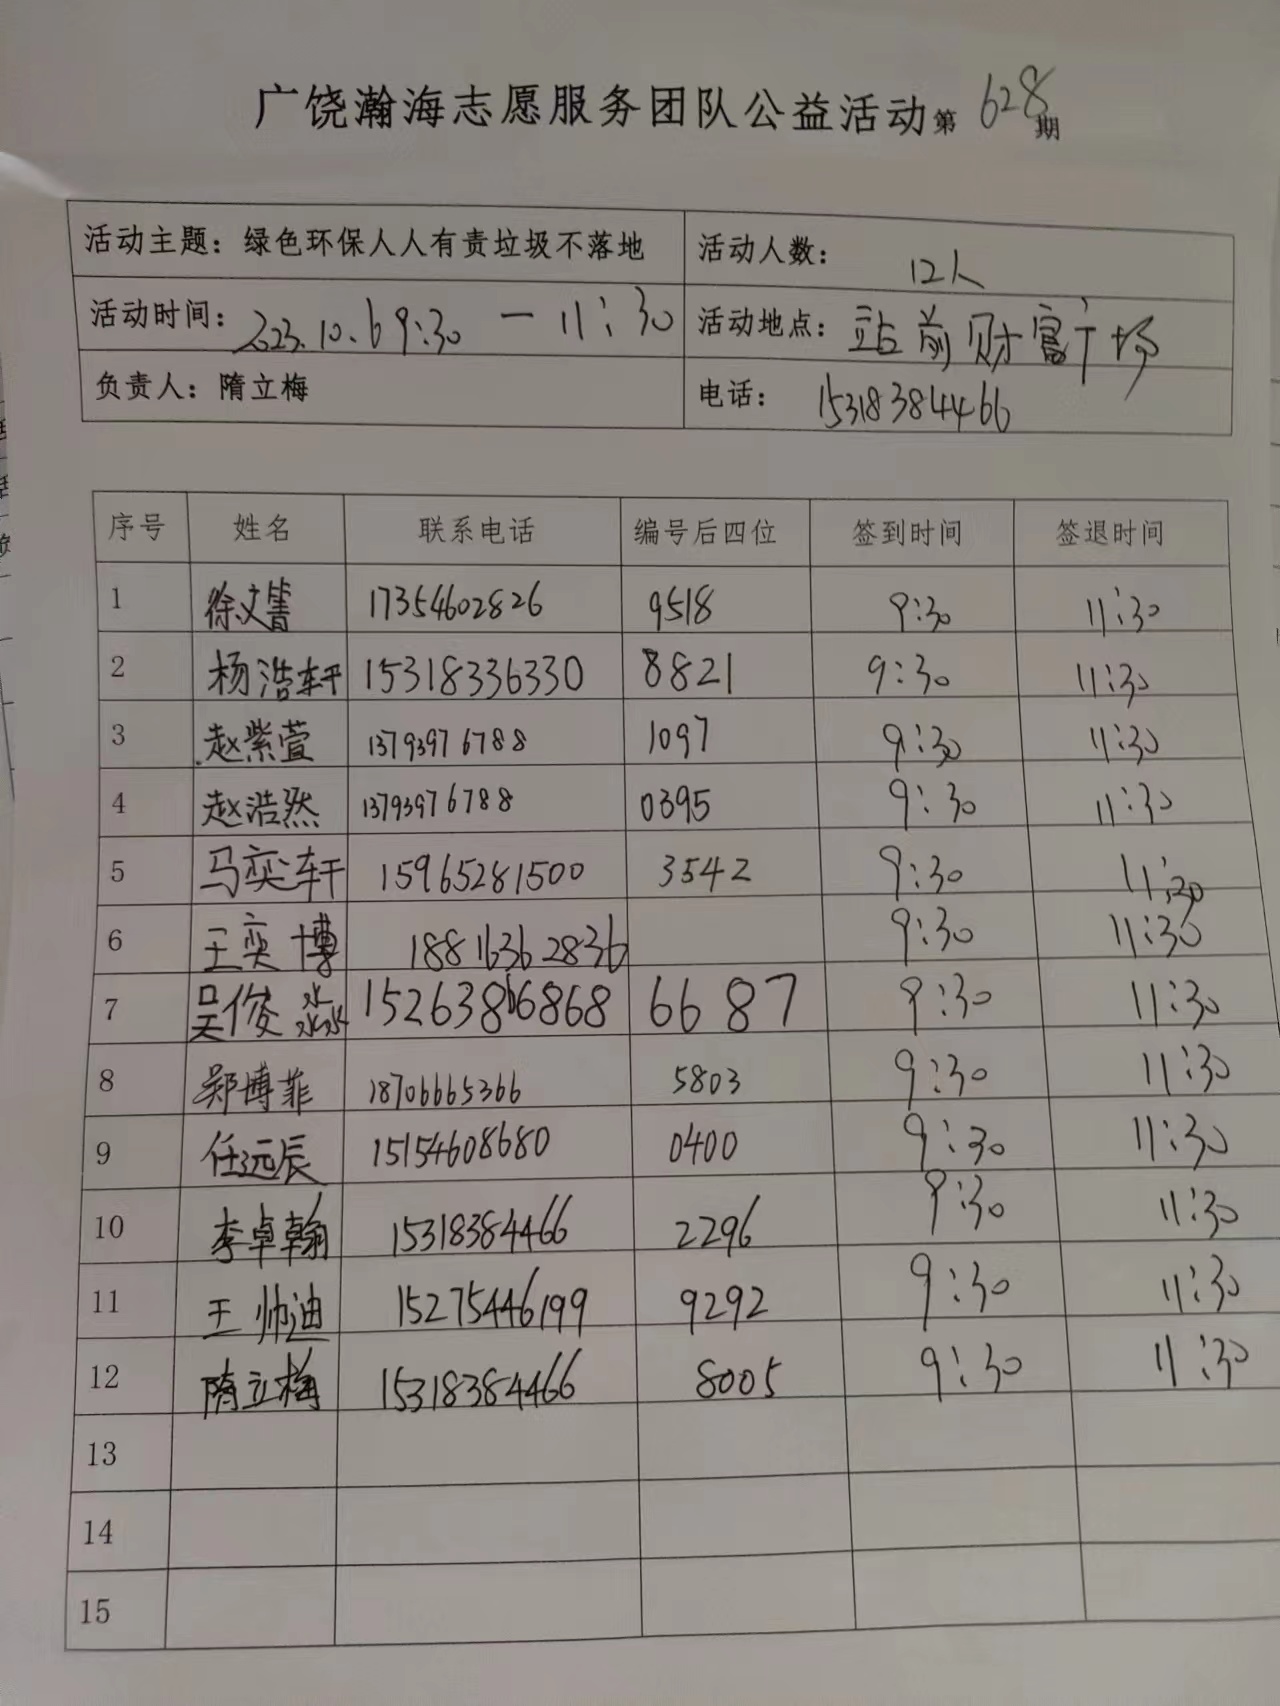 广饶瀚海志愿服务团队公益活动第628期
活动主题：绿色环保人人有责垃圾不落地 活动人数： 12人
活动时间：2023.10.6 9:30 — 11:30 活动地点：站前财富广场
负责人：隋立梅 电话：15318384466
序号 姓名 联系电话 编号后四位 签到时间 签退时间
1 徐文箐 17354602826 9518 9:30 11:30
2 杨浩轩 15318336330 8821 9:30 11:30
3 赵紫萱 13793976788 1097 9:30 11:30
4 赵浩然 13793976788 0395 9:30 11:30
5 马奕轩 15965281500 3542 9:30 11:30
6 王奕博 18816362836 9:30 11:30
7 吴俊淼 15263866868 6687 9:30 11:30
8 郑博菲 18706665366 5803 9:30 11:30
9 任远辰 15154608680 0400 9:30 11:30
10 李卓翰 15318384466 2296 9:30 11:30
11 王帅迪 15275446199 9292 9:30 11:30
12 隋立梅 15318384466 8005 9:30 11:30
13
14
15